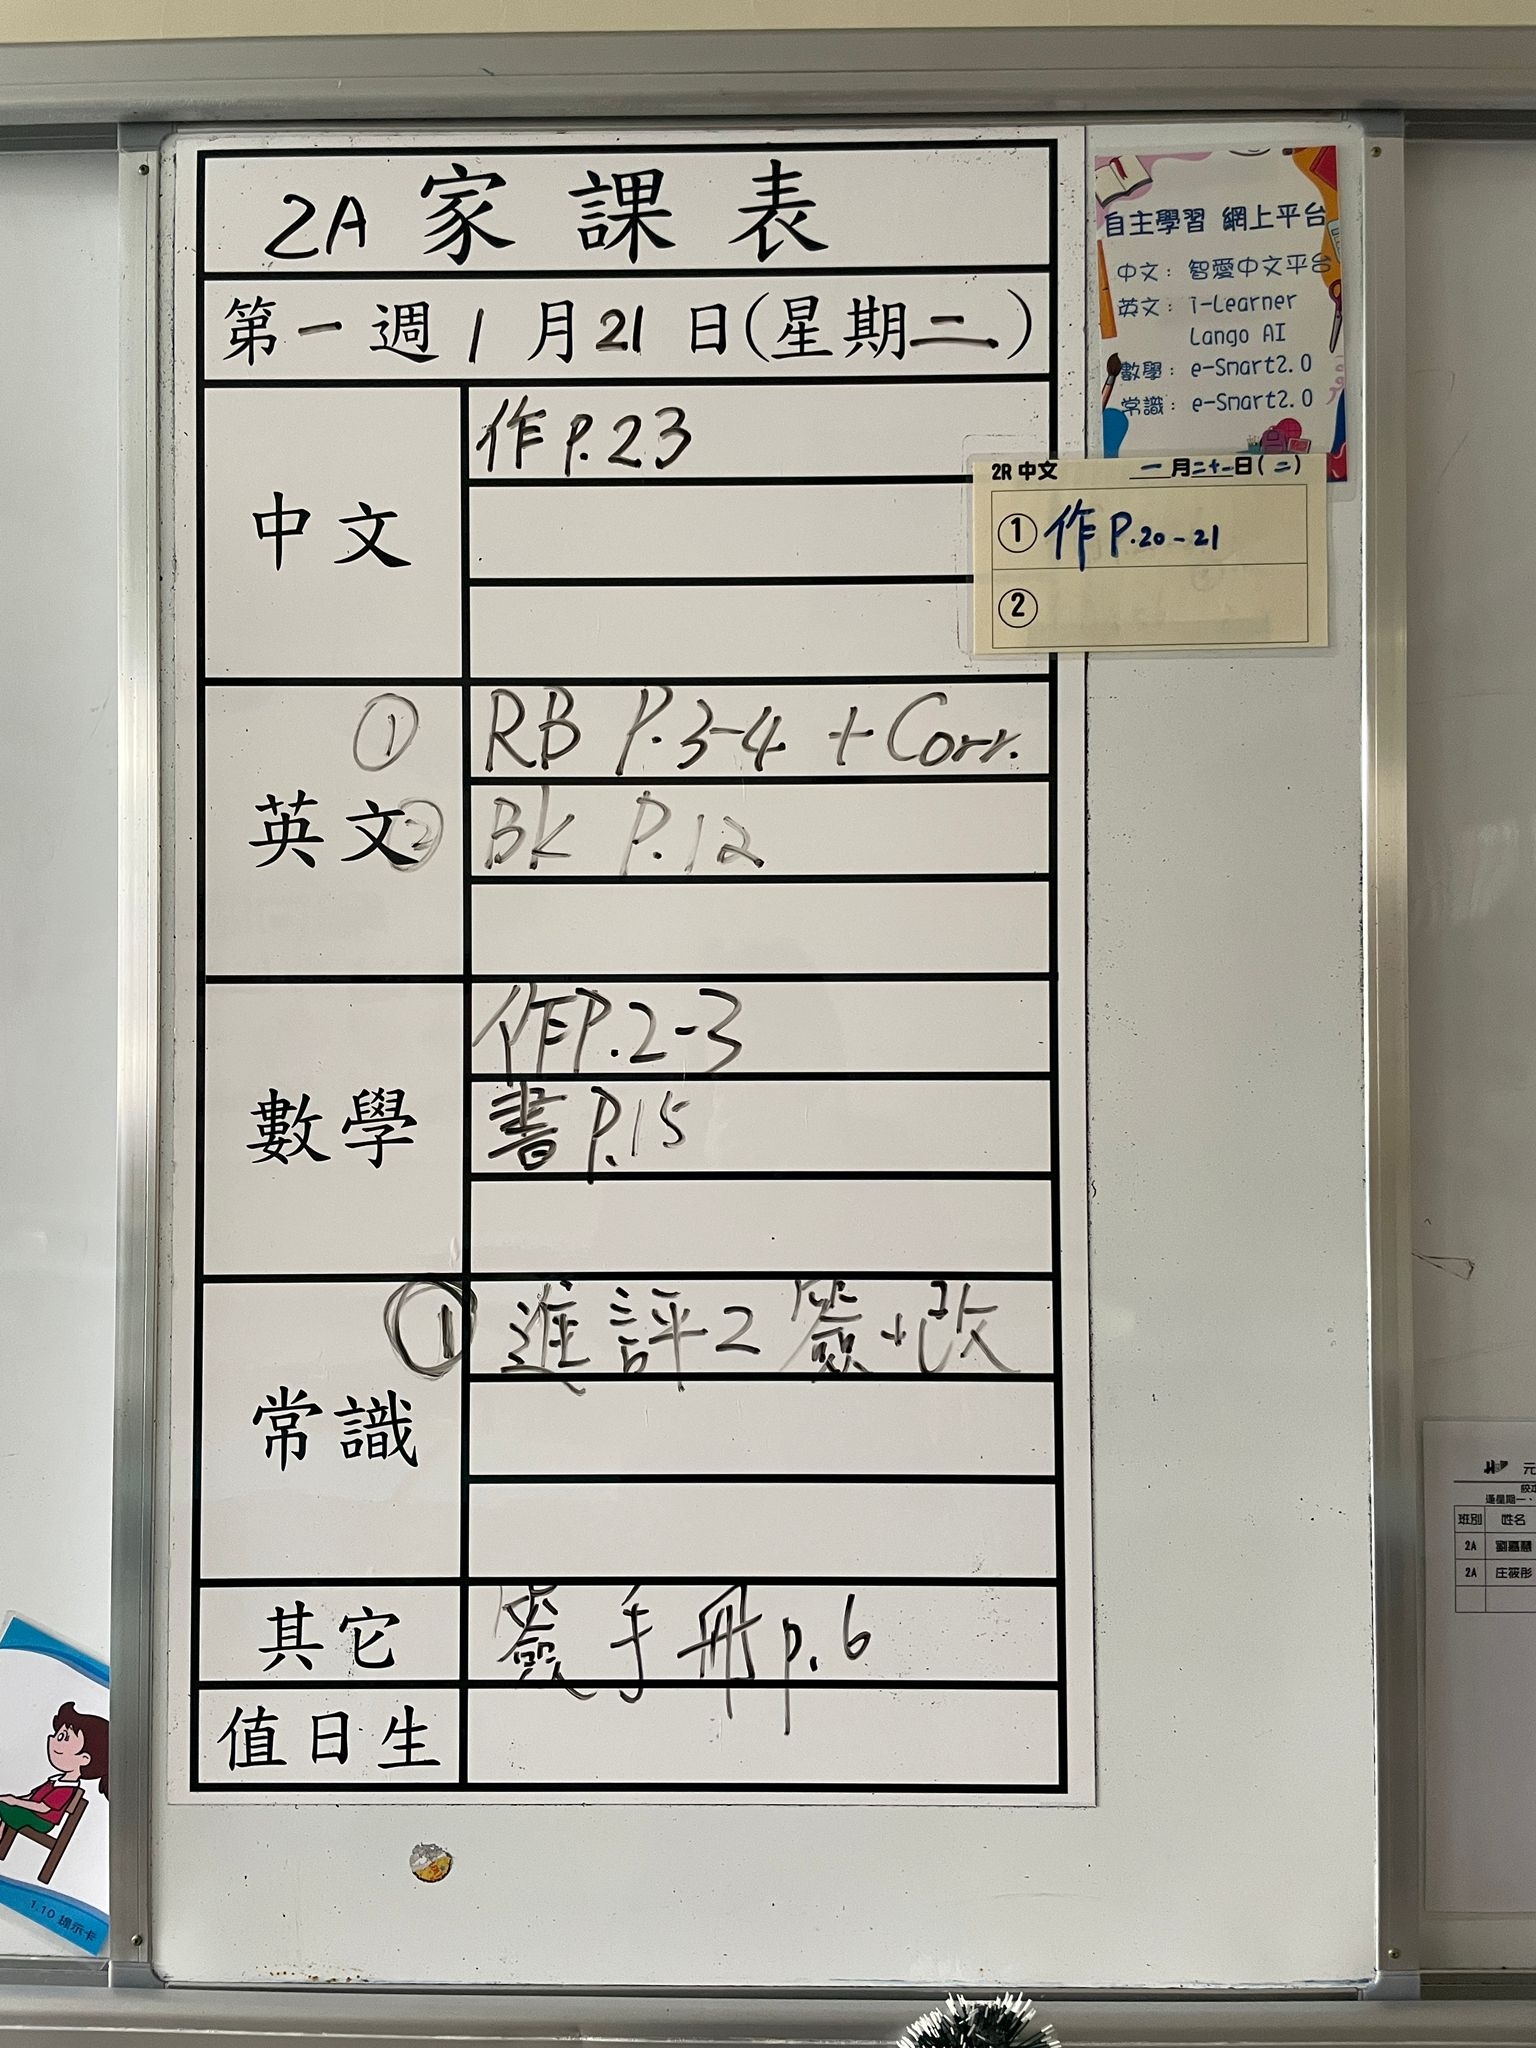 2A 家課表
第一週 1月21日(星期二)
中文
作P.23
英文
① RB P.3-4 + Corr.
② BK P.12
數學
作P.2-3
書P.15
常識
① 進評2 簽+改
其它
簽手冊p.6
值日生
自主學習 網上平台
中文：智愛中文平台
英文：i-Learner
Lango AI
數學：e-Smart2.0
常識：e-Smart2.0
2R 中文 一月二十一日(二)
① 作P.20-21
②
1.10 提示卡
元
逢星期一、
班別 姓名
2A
2A 庄筱彤